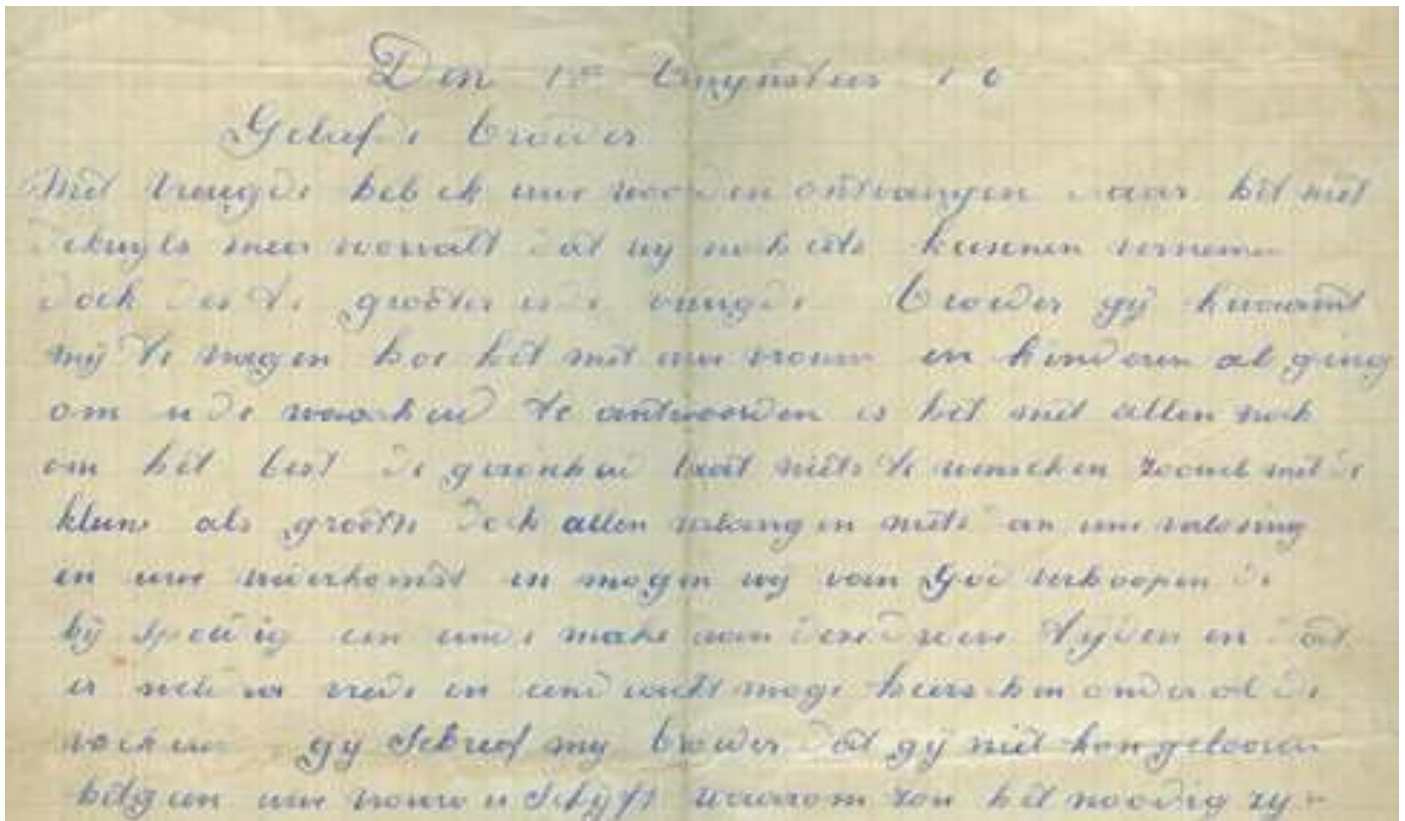 Den 1en Augustus 1 6
Geliefde broeder
Met vreugde heb ik uwe woorden ontvangen daar het niet
dikwyls meer voorvalt dat wy nog iets kunnen vernemen
doch des te grooter is de vreugde broeder gij kwaamt
mij te vragen hoe het met uwe vrouw en kinderen al ging
om u de waarheid te antwoorden is het met allen noch
om het best de gezonheid laat niets te wenschen zoowel met de
kleine als groote doch allen verlangen naar uwe verlosing
en uwe wederkomst en mogen wy van God verhoopen de
hij spoedig een einde make aan deze droeve tijden en dat
er weldra vrede en eendracht moge heerschen onder al de
volkeren gy schreef my broeder dat gij niet kon gelooven
hetgeen uwe vrouw u schryft waarom zou het noodig zyn